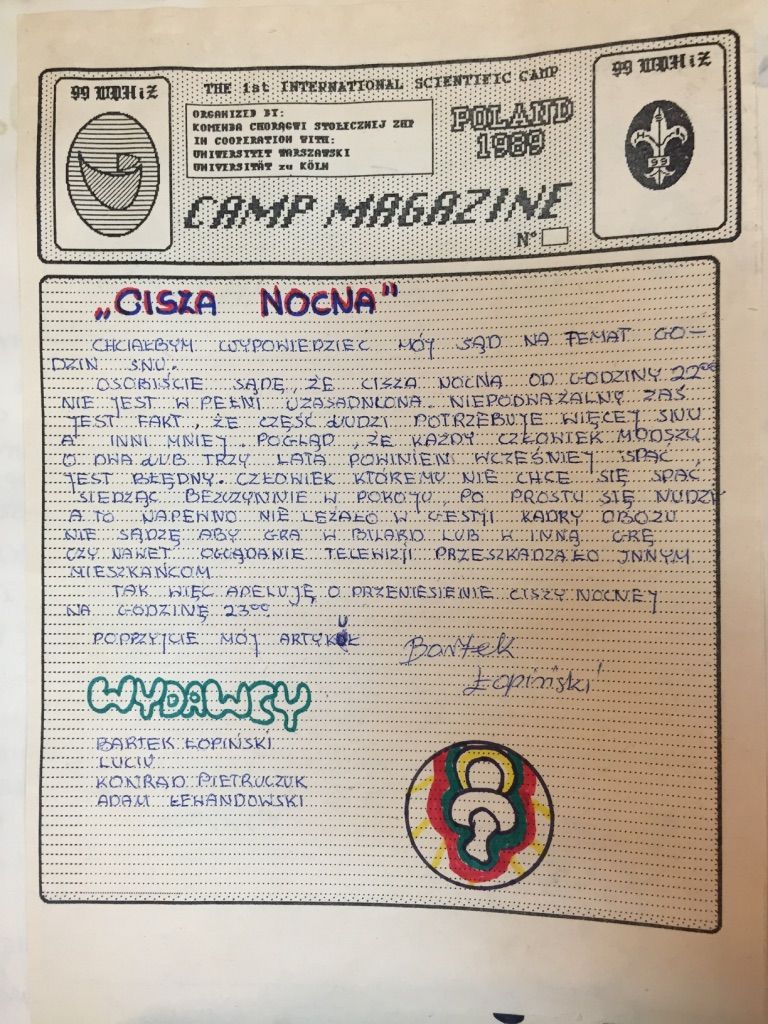 99 WDHiZ
THE 1st INTERNATIONAL SCIENTIFIC CAMP
ORGANIZED BY:
KOMENDA CHORĄGWI STOŁECZNEJ ZHP
IN COOPERATION WITH:
UNIWERSITET WARSZAWSKI
UNIVERSITÄT zu KÖLN
POLAND
1989
CAMP MAGAZINE
Nº
99 WDHiZ
99
„CISZA NOCNA"
CHCIAŁBYM WYPOWIEDZIEC MÓJ SĄD NA TEMAT GO-
DZIN SNU.
OSOBIŚCIE SĄDĘ, ŻE CISZA NOCNA OD GODZINY 22⁰⁰
NIE JEST W PEŁNI UZASADNIONA. NIEPODWAŻALNY ZAŚ
JEST FAKT, ŻE CZĘŚĆ LUDZI POTRZEBUJE WIĘCEJ SNU
A INNI MNIEJ. POGLĄD, ŻE KAŻDY CZŁOWIEK MŁODSZY
O DWA LUB TRZY LATA POWINIEN WCZEŚNIEJ SPAĆ,
JEST BŁĘDNY. CZŁOWIEK KTÓREMU NIE CHCE SIĘ SPAĆ,
SIEDZĄC BEZCZYNNIE W POKOJU, PO PROSTU SIĘ NUDZI
A TO NAPEWNO NIE LEŻAŁO W GESTJI KADRY OBOZU
NIE SĄDZĘ ABY GRA W BILARD LUB W INNĄ GRĘ
CZY NAWET OGLĄDANIE TELEWIZJI PRZESZKADZAŁO INNYM
MIESZKAŃCOM
TAK WIĘC APELUJĘ O PRZENIESIENIE CISZY NOCNEJ
NA GODZINĘ 23⁰⁰
POPRZYJCIE MÓJ ARTYKUŁ
Bartek
Łopiński
WYDAWCY
BARTEK ŁOPIŃSKI
LUCIU
KONRAD PIETRUCZUK
ADAM LEWANDOWSKI